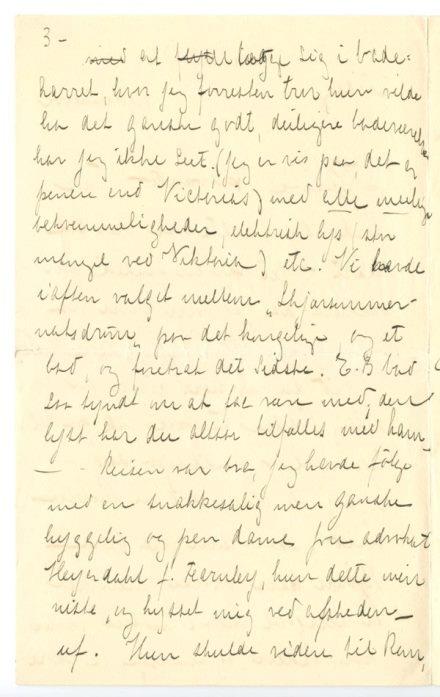 3 -
med at lægge sig i bade-
karret, hvor jeg forresten tror hun vilde
ha det ganske godt, deiligere badeværelse
har jeg ikke seet. (Jeg er vis paa, det er
penere end Victorias) med alle mulige
bekvemmeligheder, elektrisk lys (stor
mangel ved Viktoria) etc. Vi havde
iaften valget mellem "Skjærsommer-
natsdrøm" paa det kongelige, og et
bad, og foretrak det sidste. E.B bad
saa tyndt om at faa være med, den
lyst har du altsaa tilfælles med ham
— - Reisen var bra, jeg havde følge
med en snakkesalig men ganske
hyggelig og pen dame, fru advokat
Heyerdahl f. Fearnley, hun dette min
niste, og kysset mig ved afskeden -
uf. Hun skulde videre til Rom,